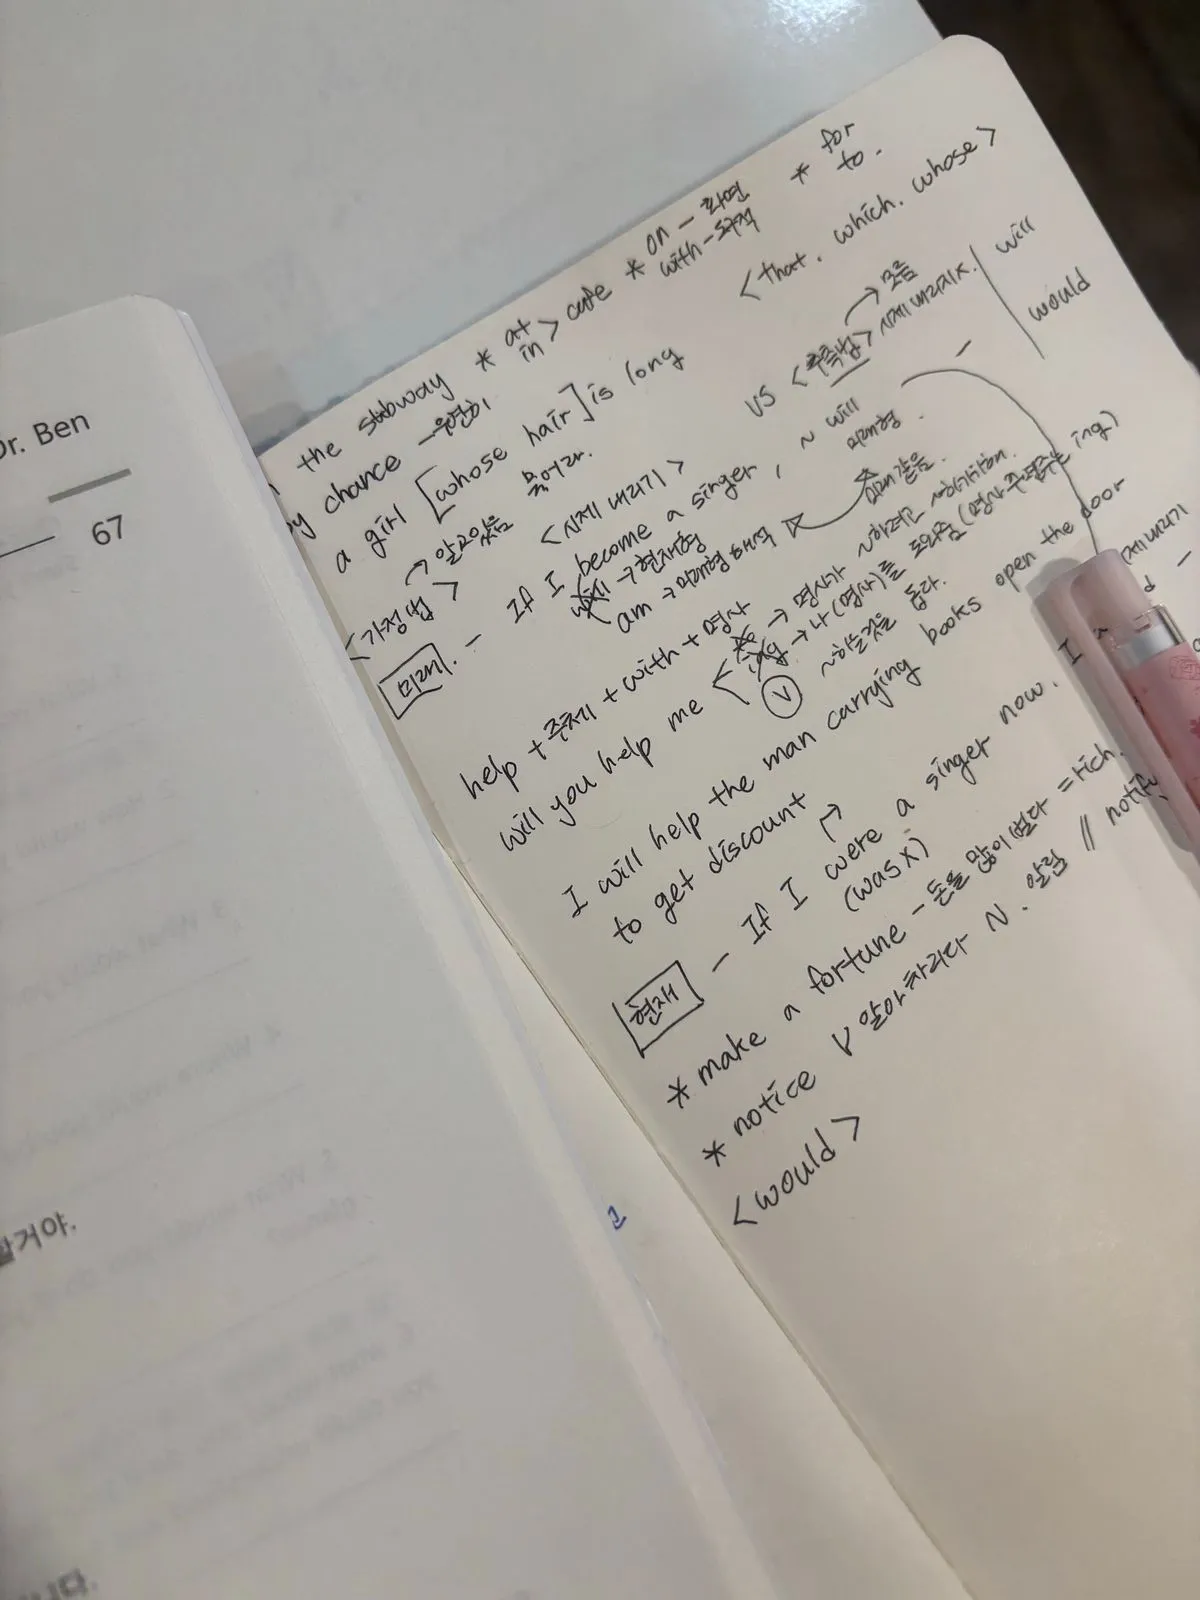 Dr. Ben
67
할거야.
니다.
the subway * at in > cafe * on - 화면 with - 목적 * for to.
by chance - 우연히 <that. which. whose>
a girl [whose hair] is long
묶어라.
→ 알고있음
<가정법> <시제 내리기> VS <추측법> → 모름 시제 내리지 X. will would
미래. - If I become a singer, ~ will -
will → 현재형 미래형.
am → 미래형 해석 미래 같음.
help + 주체 + with + 명사
to → 명사가 ~하려고 ~하기위해.
will you help me < ing → 나(명사)를 도와줌 (명사 주격주는 ing)
V ~하는것을 돕다.
I will help the man carrying books open the door
to get discount
현재 - If I were a singer now. I
(was X)
시제내리기
* make a fortune - 돈을 많이 벌다 = rich.
* notice V 알아차리다 N. 알림 // notify
<would>
1